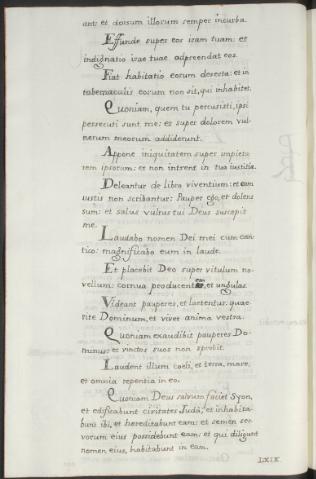 ant: et dorsum illorum semper incurba.
Effunde super eos iram tuam: et
indignatio irae tuae adpreendat eos.
Fiat habitatio eorum deserta: et in
tabernaculis eorum non sit, qui inhabitet.
Quoniam, quem tu percusisti, ipsi
persecuti sunt me: et super dolorem vul-
nerum meorum addiderunt.
Appone iniquitatem super impieta-
tem ipsorum: et non intrent in tua iustitia.
Deleantur de libro viventium: et cum
iustis non scribantur: Pauper ego, et dolens
sum: et salus vultus tui Deus suscepit
me.
Laudabo nomen Dei mei cum can-
tico: magnificabo eum in laude.
Et placebit Deo super vitulum no-
vellum: cornua producentem et ungulas.
Videant pauperes, et laetentur: quae-
rite Dominum, et vivet anima vestra.
Quoniam exaudibit pauperes Do-
minus: et vinctos suos non sprebit.
Laudent illum caeli, et terra, mare,
et omnia repentia in eo.
Quoniam Deus salvam faciet Syon,
et edificabunt civitates Judá; et inhabita-
bunt ibi, et hereditabunt eam: et semen ser-
vorum eius possidebunt eam: et qui diligunt
nomen eius, habitabunt in eam.
LXIX.